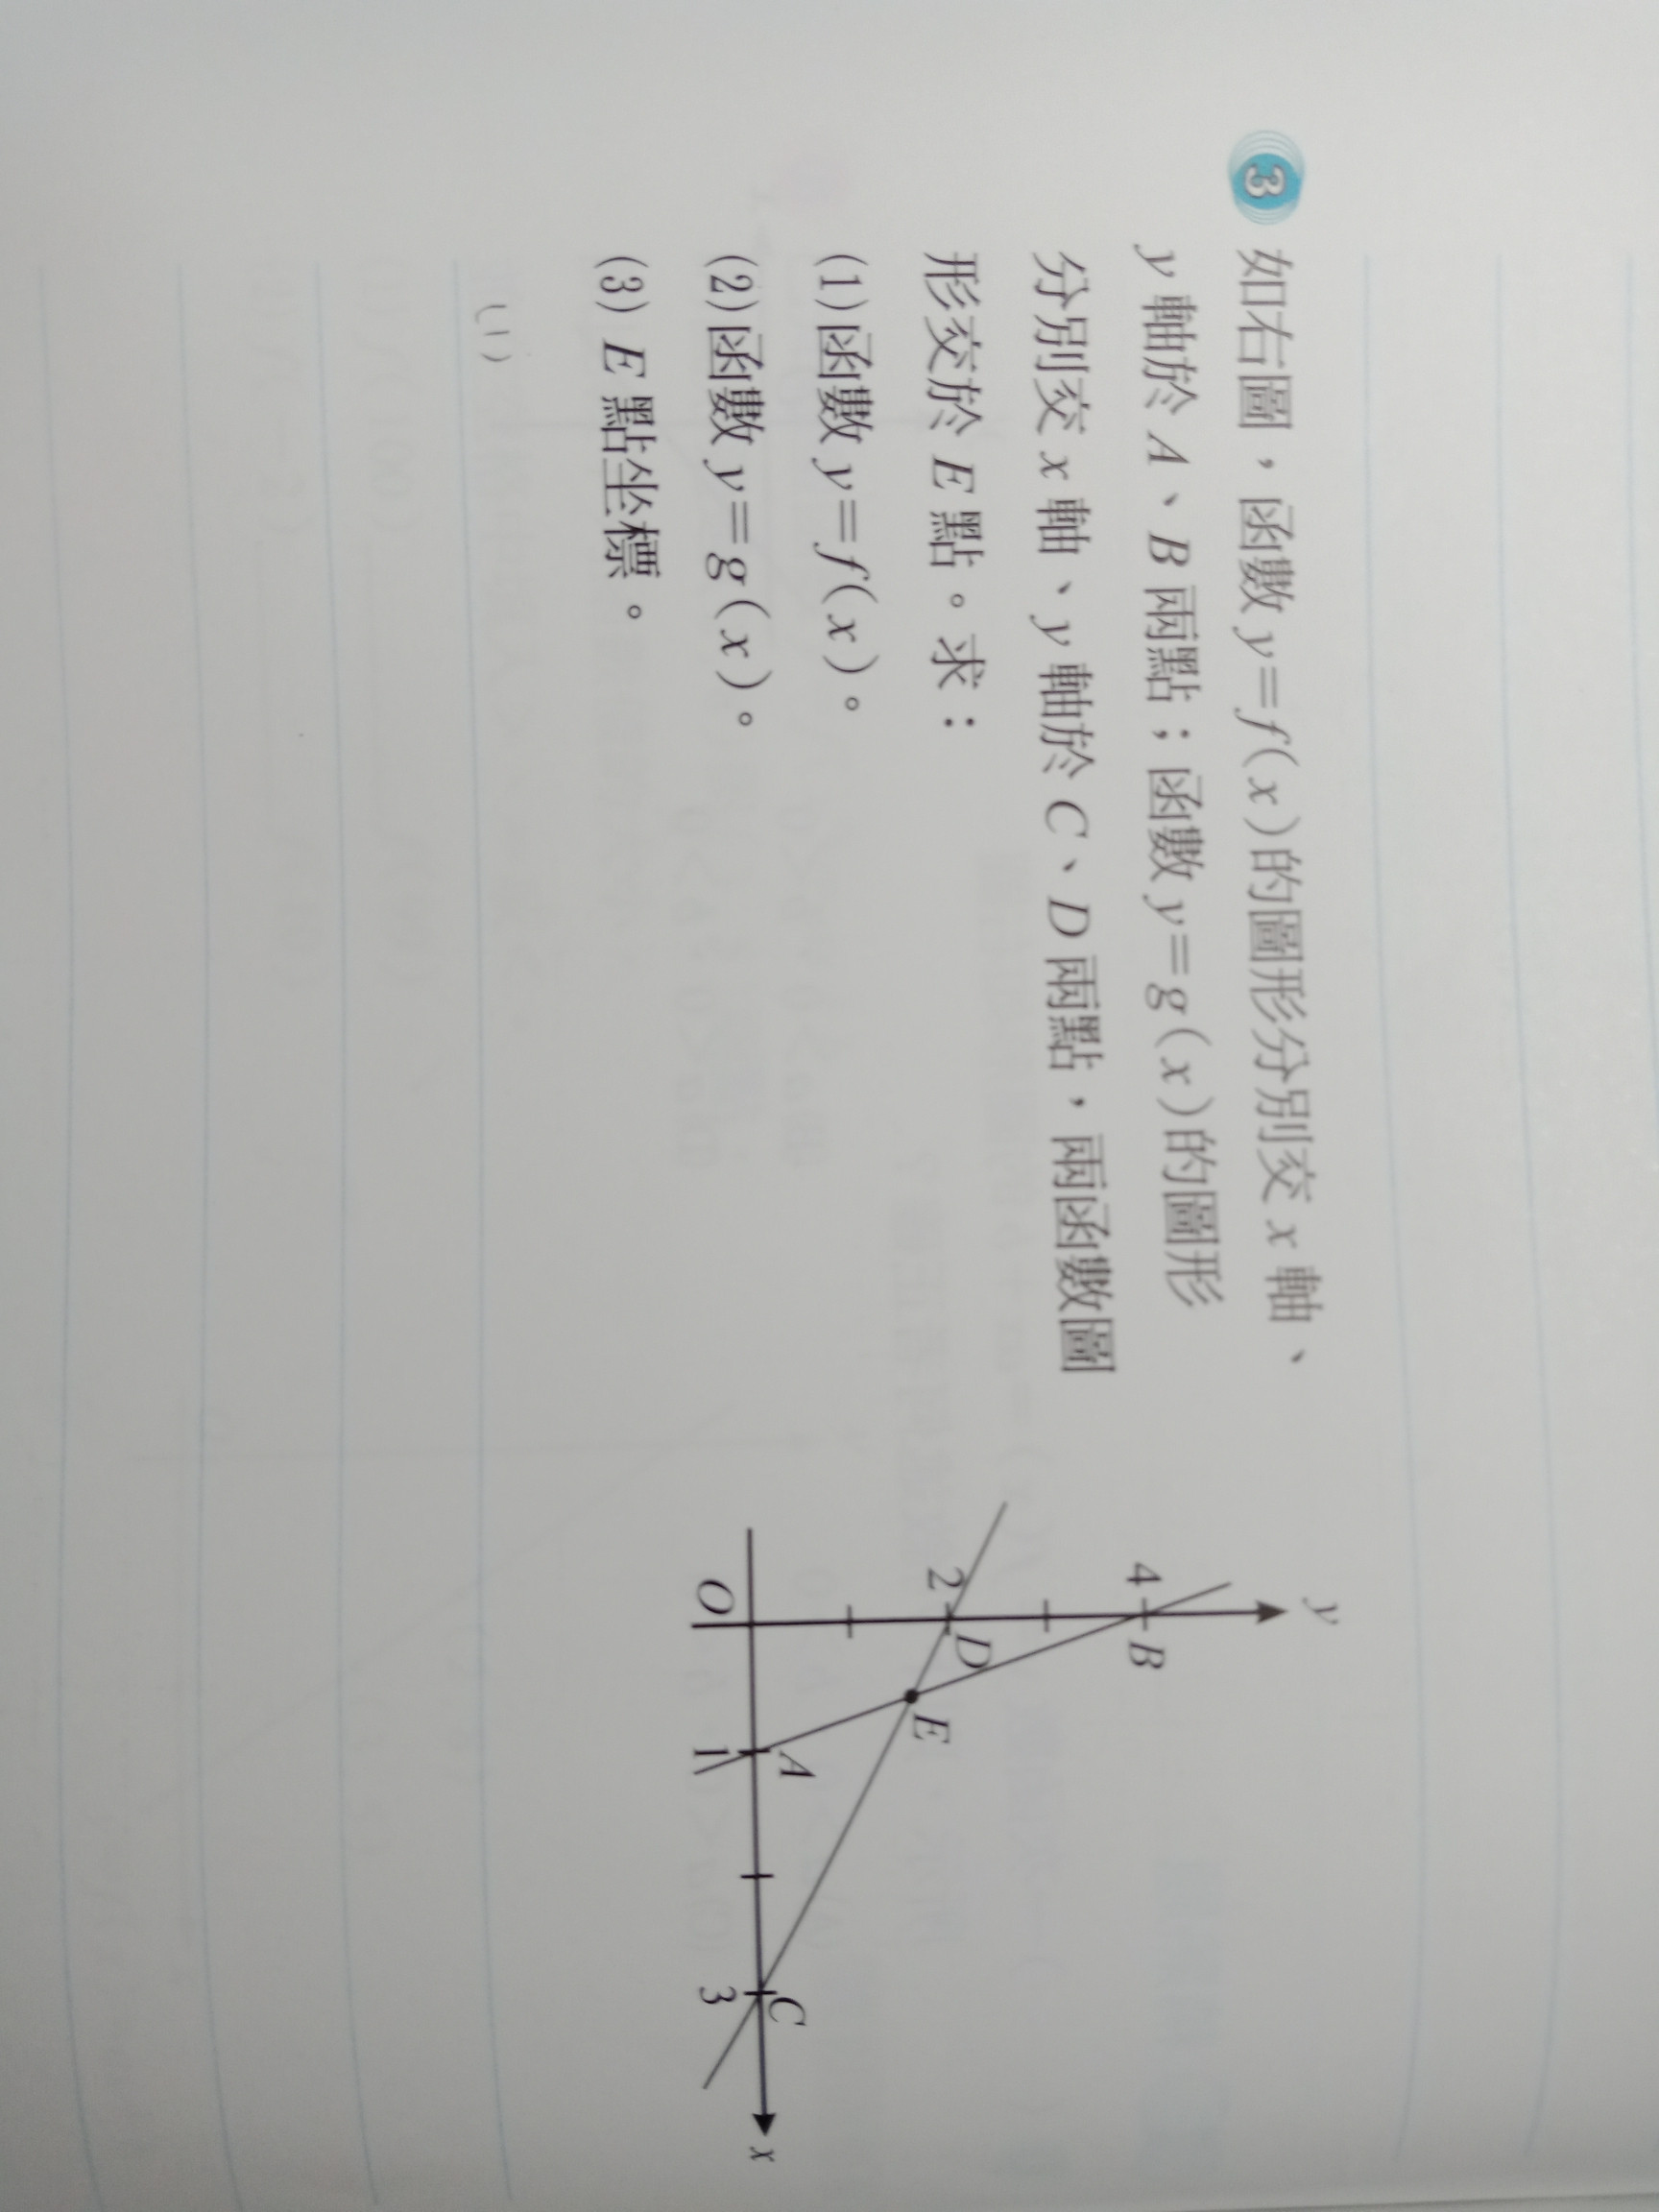 3 如右圖，函數 y＝f(x)的圖形分別交 x 軸、
y 軸於 A、B 兩點；函數 y＝g(x)的圖形
分別交 x 軸、y 軸於 C、D 兩點，兩函數圖
形交於 E 點。求：
(1)函數 y＝f(x)。
(2)函數 y＝g(x)。
(3) E 點坐標。
(1)
y
4 B
2 D
E
A C
O 1 3 x